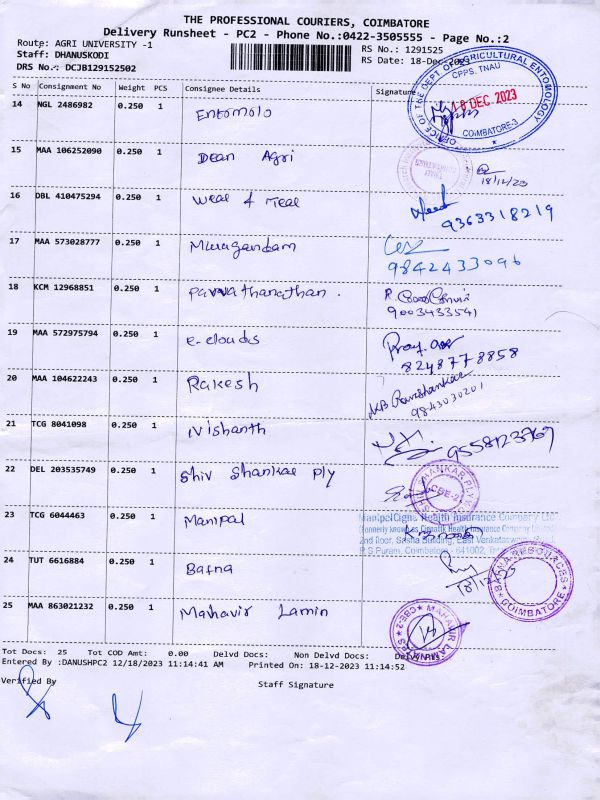 THE PROFESSIONAL COURIERS, COIMBATORE
Delivery Runsheet - PC2 - Phone No.:0422-3505555 - Page No.:2
Route: AGRI UNIVERSITY -1
RS No.: 1291525
Staff: DHANUSKODI
RS Date: 18-Dec-2023
DRS No.: DCJB129152502
S No Consignment No Weight PCS Consignee Details Signature
OFFICE OF THE DEPT OF AGRICULTURAL ENTOMOLOGY
CPPS, TNAU
18 DEC 2023
COIMBATORE-3
14 NGL 2486982 0.250 1 Entomolo
15 MAA 106252090 0.250 1 Dean Agri
18/12/23
16 DBL 410475294 0.250 1 Weal & Teal
9363318219
17 MAA 573028777 0.250 1 Murugandam
9842433096
18 KCM 12968851 0.250 1 Parvathanathan.
9003433541
19 MAA 572975794 0.250 1 e-clouds
8248778858
20 MAA 104622243 0.250 1 Rakesh
9843030201
21 TCG 8041098 0.250 1 Nishanth
9558123767
22 DEL 203535749 0.250 1 Shiv Shankar ply
23 TCG 6044463 0.250 1 Manipal
ManipalCigna Health Insurance Company Ltd
2nd Floor, East Venkataswamy Road
R.S Puram, Coimbatore - 641002,
24 TUT 6616884 0.250 1 Bafna
18/12/23
BAFNA RESOURCES
COIMBATORE
25 MAA 863021232 0.250 1 Mahavir Lamin
Tot Docs: 25 Tot COD Amt: 0.00 Delvd Docs: Non Delvd Docs:
Entered By :DANUSHPC2 12/18/2023 11:14:41 AM Printed On: 18-12-2023 11:14:52
Verified By
Staff Signature